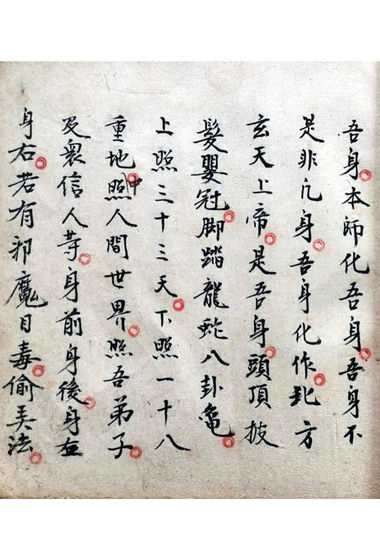 吾身本師化吾身吾身不
是非凡身吾身化作北方
玄天上帝是吾身頭頂披
髮嬰冠脚踏龍蛇八卦龜
上照三十三天下照一十八
重地中照人間世界照吾弟子
及衆信人等身前身後身左
身右若有邪魔目毒偷美法